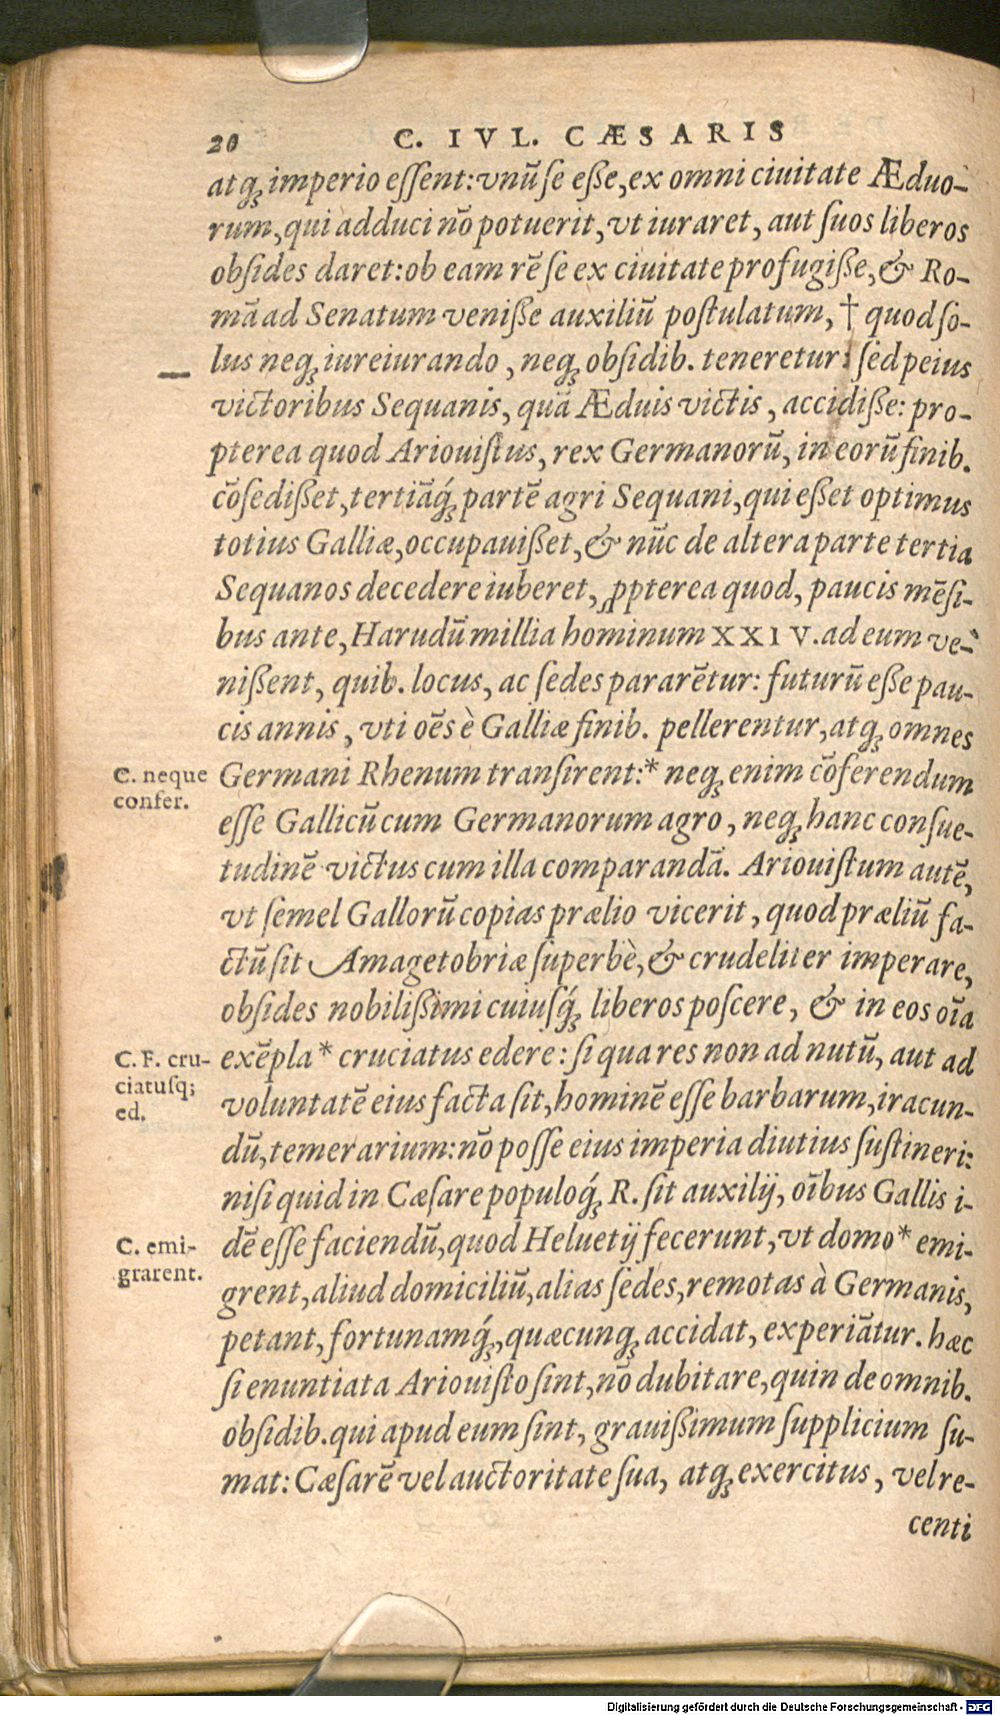 20 C. IVL. CÆSARIS
atq́; imperio eſſent: vnũ ſe eße, ex omni ciuitate Æduo-
rum, qui adduci nõ potuerit, vt iuraret, aut ſuos liberos
obſides daret: ob eam rẽ ſe ex ciuitate profugiße, & Ro-
mã ad Senatum veniße auxiliũ poſtulatum, † quod ſo-
lus neq; iureiurando, neq; obſidib. teneretur: ſed peius
victoribus Sequanis, quã Æduis victis, accidiße: pro-
pterea quod Ariouiſtus, rex Germanorũ, in eorũ finib.
cõſedißet, tertiãq́; partẽ agri Sequani, qui eßet optimus
totius Galliæ, occupauißet, & nũc de altera parte tertia
Sequanos decedere iuberet, ꝓpterea quod, paucis mẽſi-
bus ante, Harudũ millia hominum XXIV. ad eum ve-
nißent, quib. locus, ac ſedes pararẽtur: futurũ eße pau-
cis annis, vti oẽs è Galliæ finib. pellerentur, atq; omnes
C. neque
confer.
Germani Rhenum tranſirent: * neq; enim cõferendum
eſſe Gallicũ cum Germanorum agro, neq; hanc conſue-
tudinẽ victus cum illa comparandã. Ariouiſtum autẽ,
vt ſemel Gallorũ copias prælio vicerit, quod præliũ fa-
ctũ ſit Amagetobriæ ſuperbè, & crudeliter imperare,
obſides nobilißimi cuiuſq́; liberos poſcere, & in eos oĩa
C. F. cru-
ciatuſq;
ed.
exẽpla * cruciatus edere: ſi qua res non ad nutũ, aut ad
voluntatẽ eius facta ſit, hominẽ eſſe barbarum, iracun-
dũ, temerarium: nõ poſſe eius imperia diutius ſuſtineri:
niſi quid in Cæſare populoq́; R. ſit auxilij, oĩbus Gallis i-
C. emi-
grarent.
dẽ eſſe faciendũ, quod Heluetij fecerunt, vt domo * emi-
grent, aliud domiciliũ, alias ſedes, remotas à Germanis,
petant, fortunamq́;, quæcunq; accidat, experiãtur. hæc
ſi enuntiata Ariouiſto ſint, nõ dubitare, quin de omnib.
obſidib. qui apud eum ſint, grauißimum ſupplicium ſu-
mat: Cæſarẽ vel auctoritate ſua, atq; exercitus, vel re-
centi
Digitalisierung gefördert durch die Deutsche Forschungsgemeinschaft - DFG